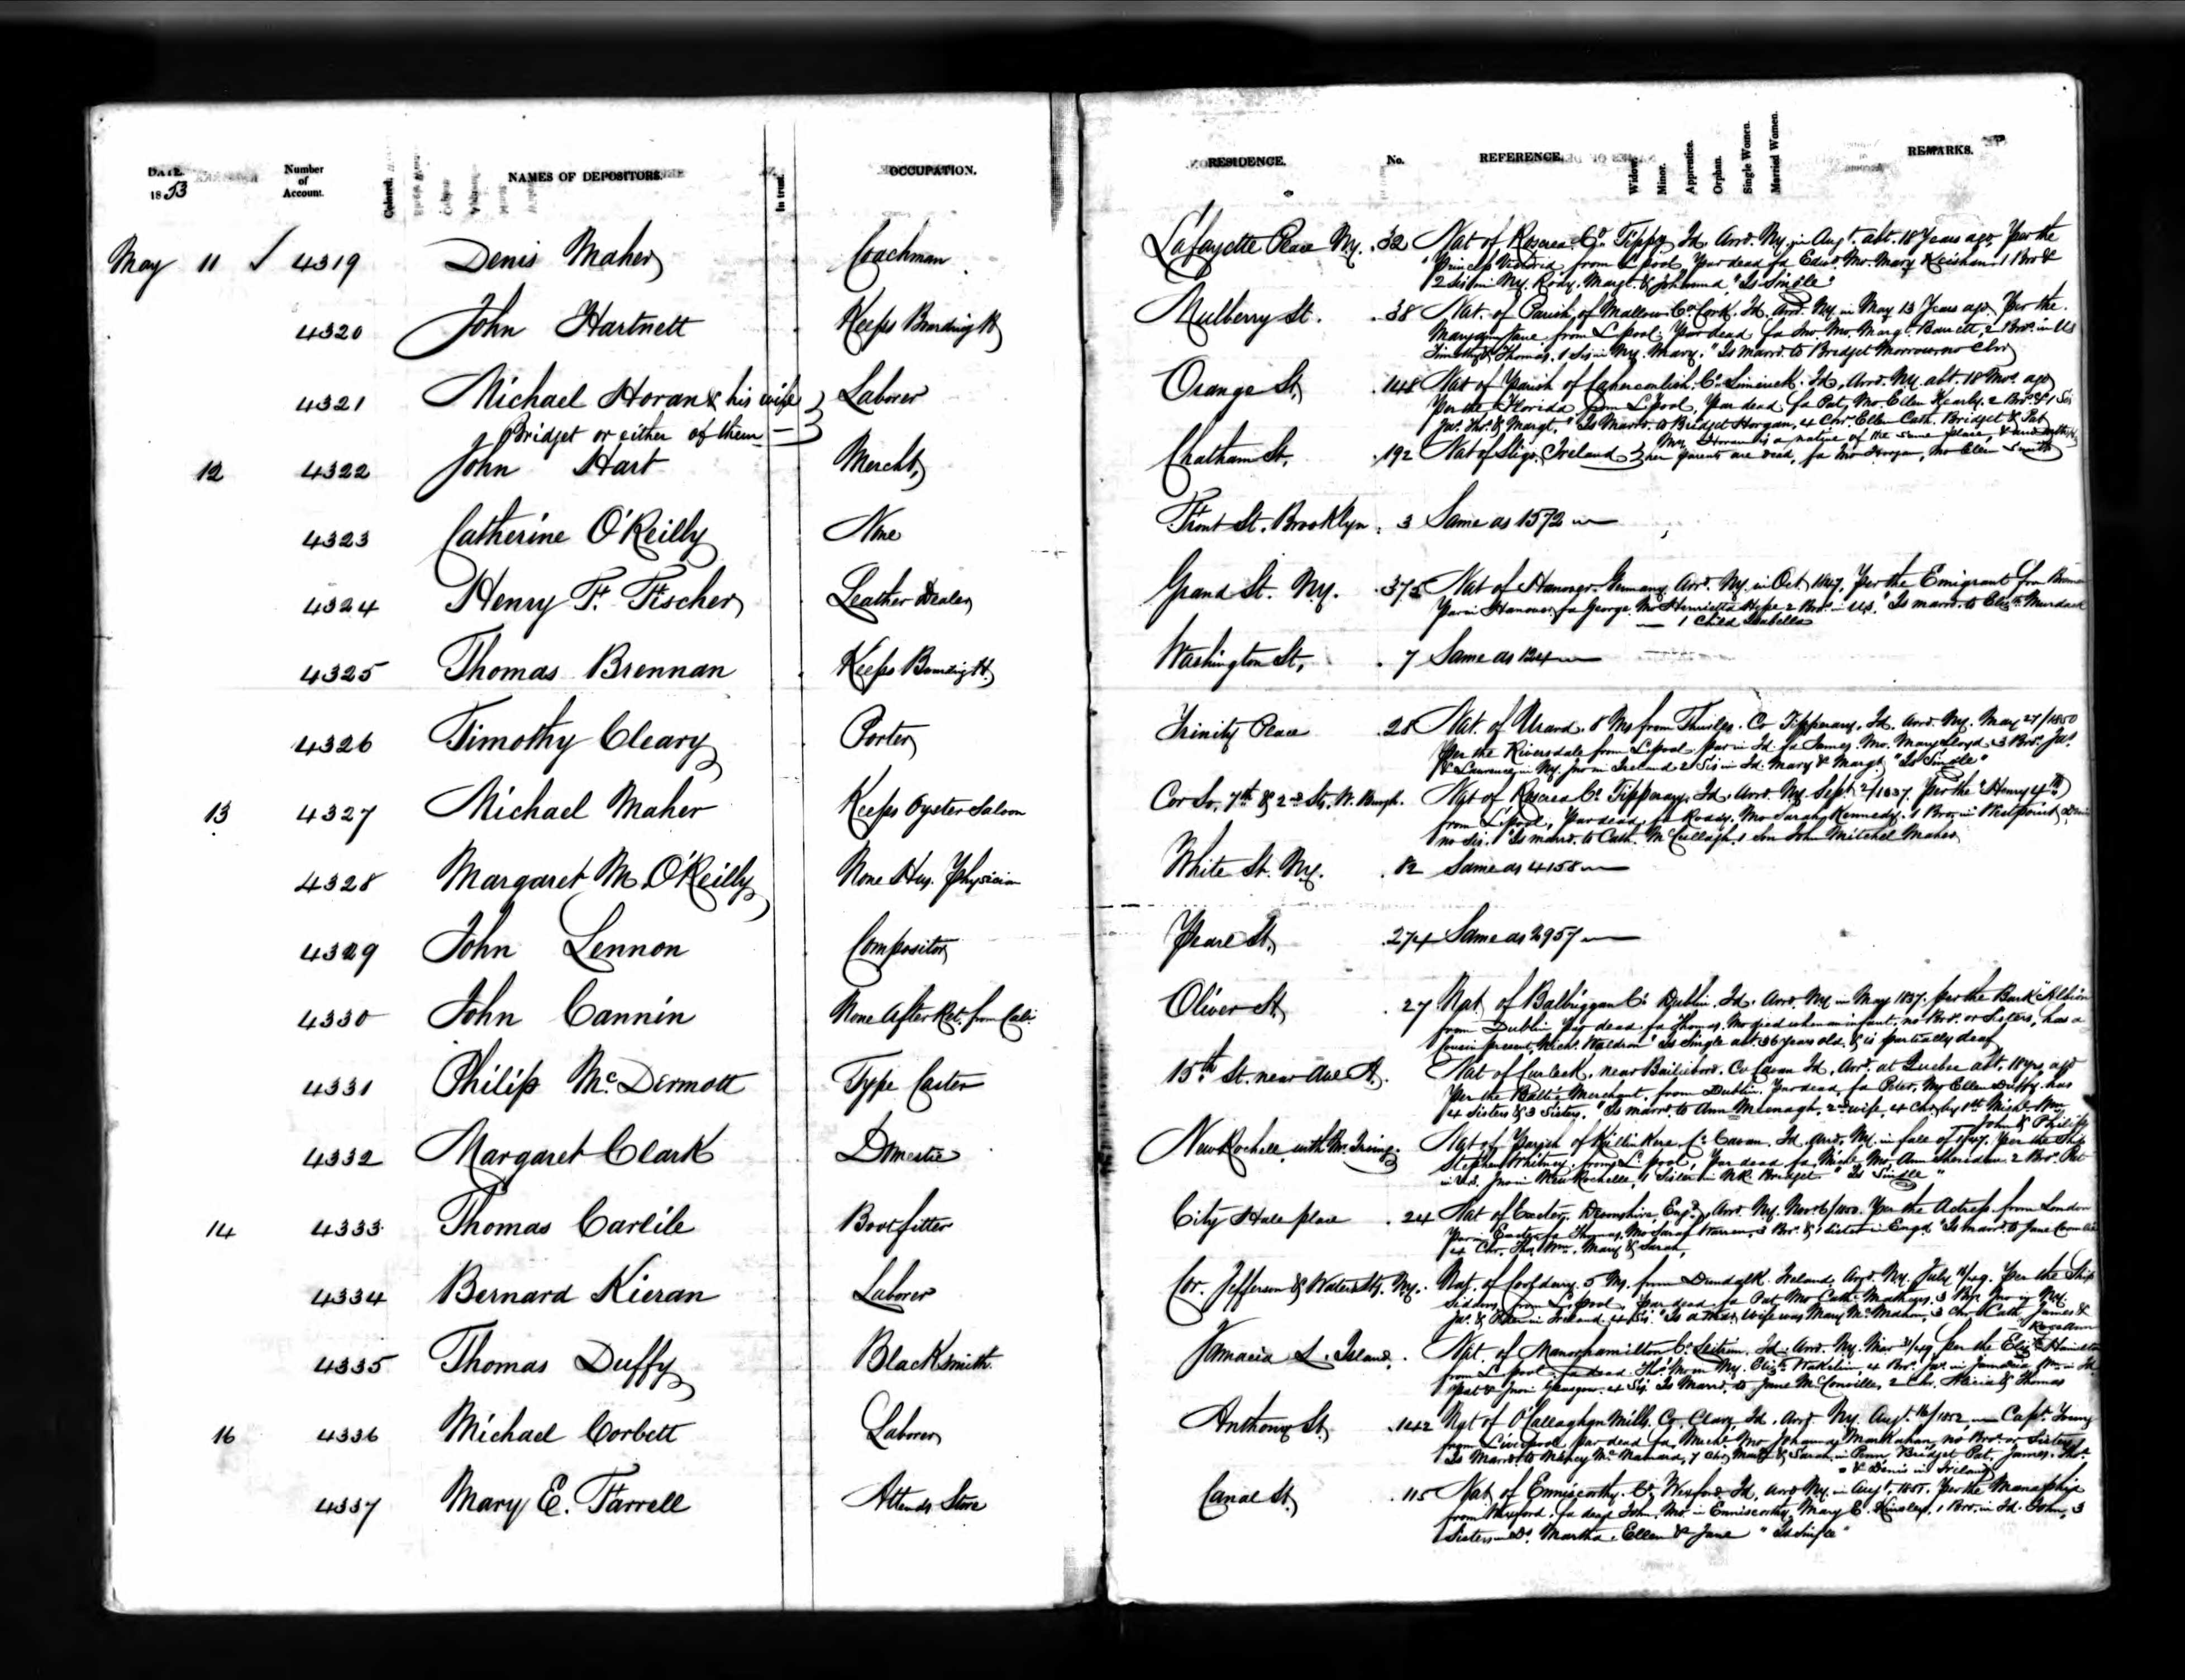 DATE. 1853 Number of Account. Colored. NAMES OF DEPOSITORS. In trust. OCCUPATION. RESIDENCE. No. REFERENCE. Widow. Minor. Apprentice. Orphan. Single Women. Married Women. REMARKS.
May 11 4319 Denis Maher Coachman Lafayette Place Ny. 32 Nat of Roscrea Co. Tippy Id. Arrd. Ny. in Augt. abt. 18 Years ago, Per the
"Princess Victoria from L'pool, Par dead fa Edwd. Mo. Mary Keishan 1 Bro &
2 Sis in Ny. Rody, Margt. & Johanna, "Is Single"
4320 John Hartnett Keeps Boarding H Mulberry St. 38 Nat. of Parish of Mallow Co. Cork. Id. Arrd. Ny. in May 13 Years ago. Per the
Jane from L'pool Par dead fa Jno. Mo. Margt. Barrett, 2 Bro. in US
Timothy & Thomas. 1 Sis in Ny. Mary. "Is marrd. to Bridget no Chr
4321 Michael Horan & his wife Laborer Orange St, 148 Nat of Parish of Caherconlish. Co. Limerick. Id, Arrd. Ny. abt. 18 Mos. ago
Bridget or either of them
Per the Florida from L'pool, Par dead fa Pat, Mo Ellen 2 Bro. & 1 Sis
Jas. Thos. & Margt. "Is Marrd. to Bridget Horgan, 4 Chr. Ellen Cath. Bridget & Pat
Mrs Horan is a native of the same place,
12 4322 John Hart Mercht, Chatham St, 192 Nat of Sligo, Ireland her parents are dead, fa Mo Ellen Smith
4323 Catherine O'Reilly None Front St. Brooklyn 3 Same as 1572
4324 Henry F. Fischer Leather Dealer Grand St. Ny. 375 Nat of Hanover Germany Arrd. Ny. in Oct 1847, Per the Emigrant from Bremen
Par in Hanover fa George Mo Henrietta 2 Bro. in US. "Is marrd. to Elizth. Murdack
1 Child Isabella
4325 Thomas Brennan Keeps Boarding H. Washington St, 7 Same as 124
4326 Timothy Cleary Porter Trinity Place 28 Nat. of 8 Ms from Thurles. Co Tipperary, Id. Arrd. Ny. May 27/1850
Per the Riversdale from L'pool par in Id. fa James. Mo. Mary Lloyd 3 Bro. Jas.
& Lawrence in Ny. Jno in Ireland 2 Sis in Id. Mary & Margt. "Is Single"
13 4327 Michael Maher Keeps Oyster Saloon Cor So. 7th & 2nd Sts, W. Burgh. Nat of Roscrea Co. Tipperary, Id. Arrd. Ny. Sept 2/1837. Per the "Henry 4th"
from L'pool, Par dead, fa Roddy. Mo Sarah Kennedy. 1 Bro. in Westpoint Denis
no Sis. "Is marrd. to Cath. McCullagh. 1 Son John Mitchel Maher
4328 Margaret M. O'Reilly None Hus. Physician White St. Ny. 82 Same as 4158
4329 John Lennon Compositor Pearl St, 274 Same as 2957
4330 John Cannin None After Ret. from Cali. Oliver St 27 Nat. of Balbriggan Co. Dublin. Id. Arrd. Ny. in May 1837. per the Bark "Albion
from Dublin Par dead fa Thomas. Mo died when an infant, no Bro. or Sisters, has a
Cousin present, Michl. Waldron "Is Single abt 36 years old, & is partially deaf
4331 Philip McDermott Type Caster 15th. St. near Ave A. Nat of near Bailieboro. Co Cavan Id. Arrd. at Quebec abt. 18 yrs. ago
Per the Baltic Merchant, from Dublin, Par dead, fa Peter, Mo Ellen Duffy. has
4 Sisters & 3 Sisters, "Is marrd. to Ann 2nd wife, 4 Chr. by 1st Michl. Wm
John & Philip
4332 Margaret Clark Domestic New Rochelle with Mr. Irving. Nat of Parish of Killinkere Co. Cavan, Id. Arrd. Ny. in fall of 1847. Per the Ship
Stephen Whitney from L'pool, Par dead fa Michl. Mo. Ann Sheridan 2 Bro. Pat
in US. Jno in New Rochelle, 1 Sister in N.R. Bridget. "Is Single"
14 4333 Thomas Carlile Bootfitter City Hall place 24 Nat of Exeter, Devonshire, Engd, Arrd. Ny. Nov. 6/1850. Per the from London
Par in Exeter fa Thomas, Mo Sarah Warren, 3 Bro. & 1 Sister in Engd. "Is marrd. to Jane
4 Chr. Thos. Wm. Mary & Sarah,
4334 Bernard Kieran Laborer Cor. Jefferson & Water Sts, Ny. Nat. of 5 Ms. from Dundalk Ireland, Arrd. Ny. July /49. Per the Ship
Siddons from L'pool, Par dead fa Pat Mo Cath. Mathews, 3 Bro. Jno in Ny.
Jas. & Peter in Ireland 4 Sis. Wife was Mary McMahon, 3 Chr. Cath James &
Roseann
4335 Thomas Duffy Blacksmith Jamacia L. Island. Nat. of Manorhamilton Co. Leitrim. Id. Arrd. Ny. Mar /49. per the Elizth.
from L'pool fa dead Thos. Mo in Ny. Elizth. 4 Bro. Jas. in Jamaica, Wm in Id.
Pat & Jno in Glasgow. 4 Sis. "Is Marrd. to Jane McConville, 2 Chr. Alicia & Thomas
16 4336 Michael Corbett Laborer Anthony St, 142 Nat of O'Callaghan Mills, Co. Clare, Id. Arrd. Ny. Augt. 16/1852 Capt. Young
from Liverpool par dead fa Michl. Mo Johanna no Bro. or Sisters
Is Marrd. to McNamara, 7 Chr. Mary & Sarah in Penn, Bridget Pat, James. Thos.
& Denis in Ireland
4337 Mary E. Farrell Attends Store Canal St, 115 Nat of Enniscorthy. Co. Wexford, Id, Arrd Ny. in Augt. Per the
from Wexford, fa dead John. Mo. in Enniscorthy Mary E. 1 Bro. in Id. John, 3
Sisters in Do. Martha, Ellen & Jane "Is Single"